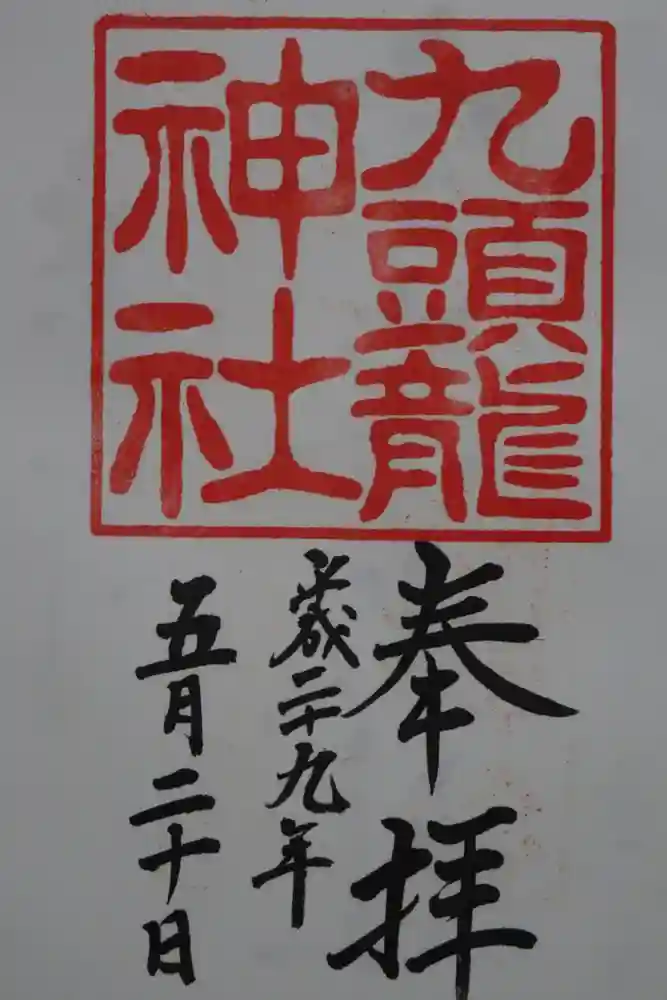 九頭龍
神社
奉拝
歳二十九年
五月二十日